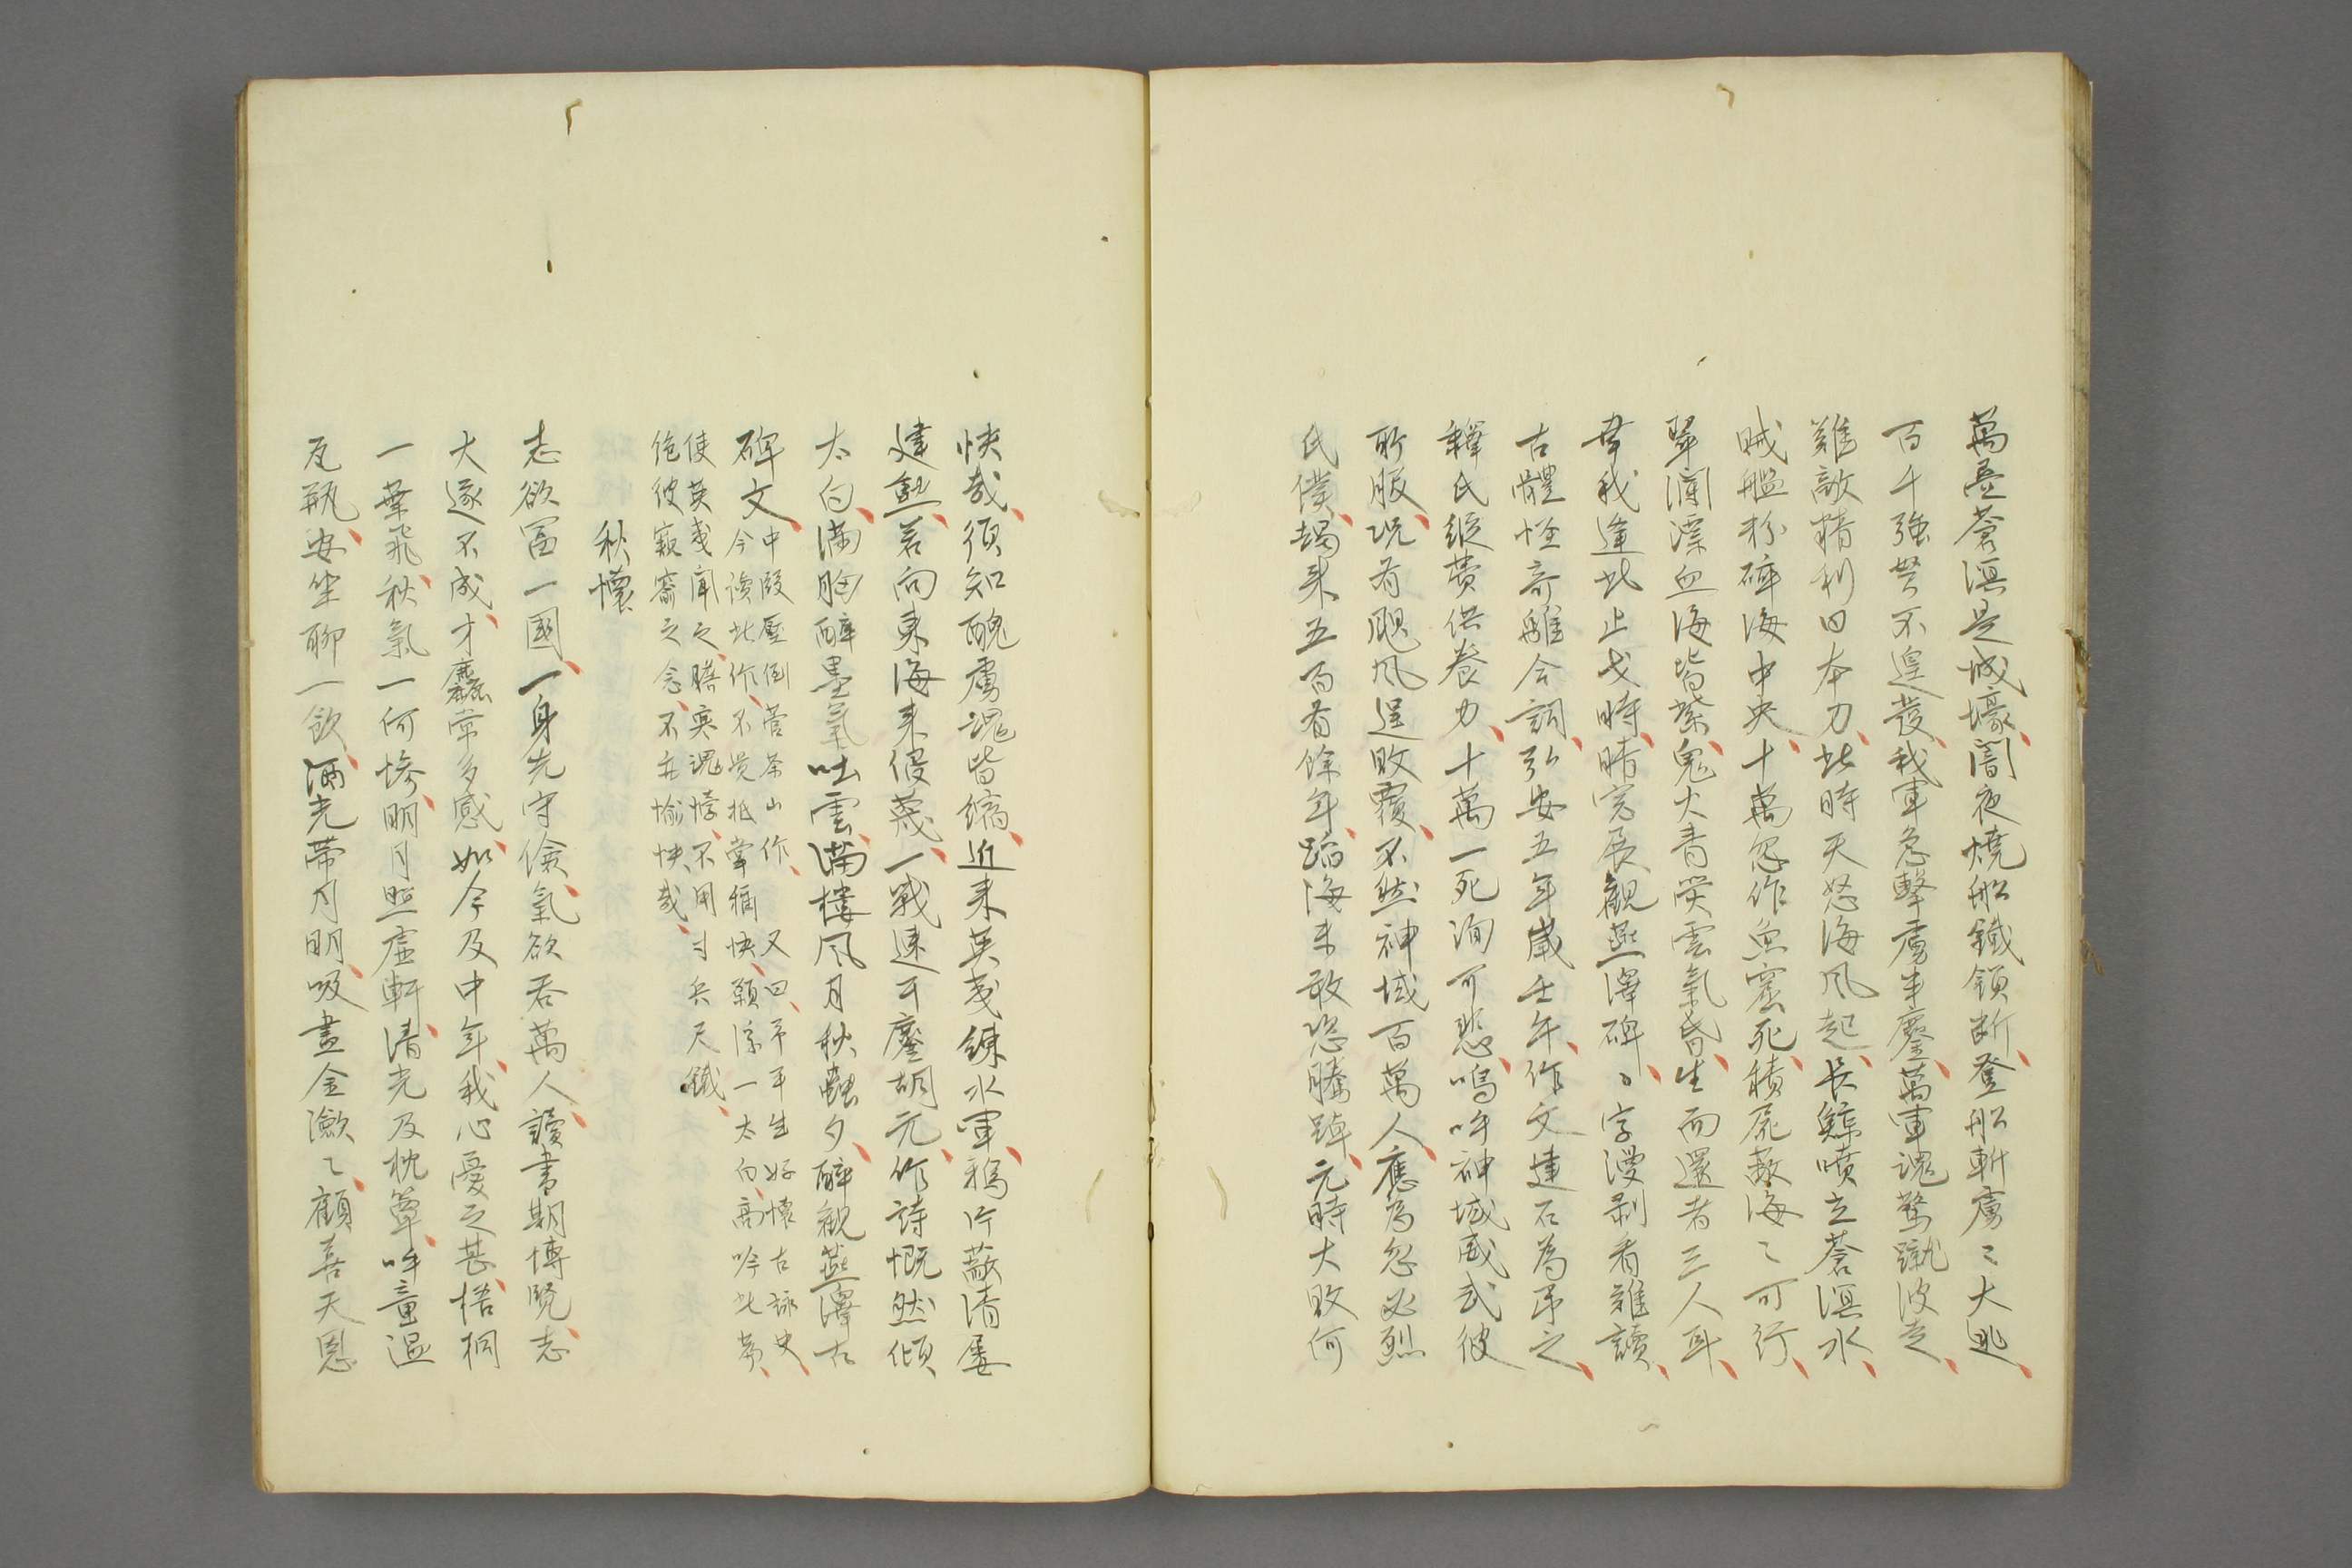 萬疊蒼溟是城壕闇夜燒船鐵鎖断登船斬虜〻大逃
百千強弩不遑發我軍急擊虜半鏖萬軍魂驚蹴波走
難敵精利日本刀此時天怒海風起長鯨噴立蒼溟水
賊艦粉碎海中央十萬忽作魚窟死積屍蔽海〻可行
翠瀾漂血海皆紫鬼火青熒雲氣昏生而還者三人耳
幸我逢此止戈時晴窓展觀燕澤碑〻字漫剥看難讀
古體怪奇難会詞弘安五年歲壬午作文建石為弔之
釋氏縱費供養力十萬一死洵可悲嗚呼神域威武彼
所服況有颶風逞敗覆不然神域百萬人應為忽必烈
氏僕朅来五百有餘年蹈海未敢恣騰踔元時大敗何
快哉須知醜虜魂皆縞近来英夷練水軍鴉片蔽清屡
建勲若向東海来侵蔑一戰速可鏖胡元作詩慨然傾
太白滿胸醉墨氣吐雲滿樓風月秋蟲夕醉観燕澤古
碑文
中段壓倒菅茶山作又曰予平生好懷古詠史
今讀此作不覺抵掌稱快願浮一太白高吟此夢
使英夷聞之膽寒魂悸不用寸兵尺鐵
絶彼窺窬之念不亦愉快哉
秋懷
志欲冨一國一身先守儉氣欲吞萬人讀書期博覽志
大遂不成才麤常多感如今及中年我心憂之甚梧桐
一葉飛秋氣一何惨明月照虚軒清光及枕簟呼童温
瓦瓶安坐聊一飲酒光帶月明吸盡金瀲〻顧喜天恩